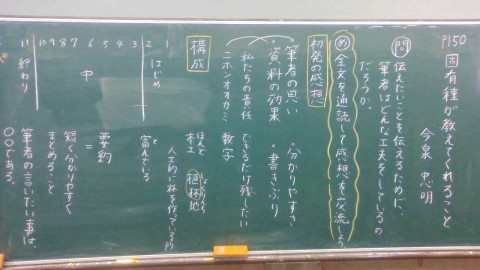 P150
固有種が教えてくれること
今泉 忠明
問 伝えたいことを伝えるために、
筆者はどんな工夫をしているの
だろうか。
め 全文を通読して感想を交流しよう
初発の感想
筆者の思い ・分かりやすさ
・資料の効果 ・書きぶり
私たちの責任 できるだけ残したい
ニホンオオカミ 数字
構成
ほとんど 木工
植林地
人工的に林を作っている所
1 はじめ
2
富んでいる
3
4
5
6
7
8
9
10
中
要約
=
短く分かりやすく
まとめること
11 終わり
筆者の言いたい事は、
〇〇である。